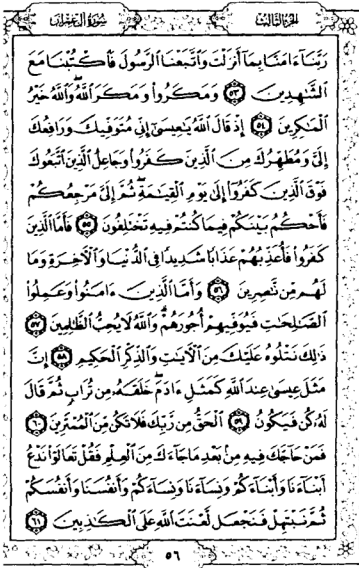 سُورَةُ آلِ عِمْرَانَ
الجُزْءُ الثَّالِثُ
رَبَّنَآ ءَامَنَّا بِمَآ أَنزَلْتَ وَٱتَّبَعْنَا ٱلرَّسُولَ فَٱكْتُبْنَا مَعَ
ٱلشَّٰهِدِينَ ٥٣ وَمَكَرُوا۟ وَمَكَرَ ٱللَّهُ وَٱللَّهُ خَيْرُ
ٱلْمَٰكِرِينَ ٥٤ إِذْ قَالَ ٱللَّهُ يَٰعِيسَىٰٓ إِنِّى مُتَوَفِّيكَ وَرَافِعُكَ
إِلَىَّ وَمُطَهِّرُكَ مِنَ ٱلَّذِينَ كَفَرُوا۟ وَجَاعِلُ ٱلَّذِينَ ٱتَّبَعُوكَ
فَوْقَ ٱلَّذِينَ كَفَرُوٓا۟ إِلَىٰ يَوْمِ ٱلْقِيَٰمَةِ ثُمَّ إِلَىَّ مَرْجِعُكُمْ
فَأَحْكُمُ بَيْنَكُمْ فِيمَا كُنتُمْ فِيهِ تَخْتَلِفُونَ ٥٥ فَأَمَّا ٱلَّذِينَ
كَفَرُوا۟ فَأُعَذِّبُهُمْ عَذَابًا شَدِيدًا فِى ٱلدُّنْيَا وَٱلْءَاخِرَةِ وَمَا
لَهُم مِّن نَّٰصِرِينَ ٥٦ وَأَمَّا ٱلَّذِينَ ءَامَنُوا۟ وَعَمِلُوا۟
ٱلصَّٰلِحَٰتِ فَيُوَفِّيهِمْ أُجُورَهُمْ وَٱللَّهُ لَا يُحِبُّ ٱلظَّٰلِمِينَ ٥٧
ذَٰلِكَ نَتْلُوهُ عَلَيْكَ مِنَ ٱلْءَايَٰتِ وَٱلذِّكْرِ ٱلْحَكِيمِ ٥٨ إِنَّ
مَثَلَ عِيسَىٰ عِندَ ٱللَّهِ كَمَثَلِ ءَادَمَ خَلَقَهُۥ مِن تُرَابٍ ثُمَّ قَالَ
لَهُۥ كُن فَيَكُونُ ٥٩ ٱلْحَقُّ مِن رَّبِّكَ فَلَا تَكُن مِّنَ ٱلْمُمْتَرِينَ ٦٠
فَمَنْ حَآجَّكَ فِيهِ مِنۢ بَعْدِ مَا جَآءَكَ مِنَ ٱلْعِلْمِ فَقُلْ تَعَالَوْا۟ نَدْعُ
أَبْنَآءَنَا وَأَبْنَآءَكُمْ وَنِسَآءَنَا وَنِسَآءَكُمْ وَأَنفُسَنَا وَأَنفُسَكُمْ
ثُمَّ نَبْتَهِلْ فَنَجْعَل لَّعْنَتَ ٱللَّهِ عَلَى ٱلْكَٰذِبِينَ ٦١
٥٦